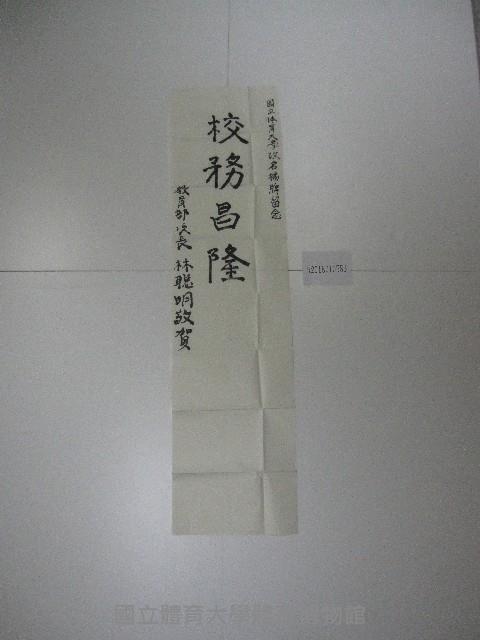 國立体育大學改名揭牌留念
校務昌隆
教育部次長 林聰明敬賀
國立體育大學體育博物館